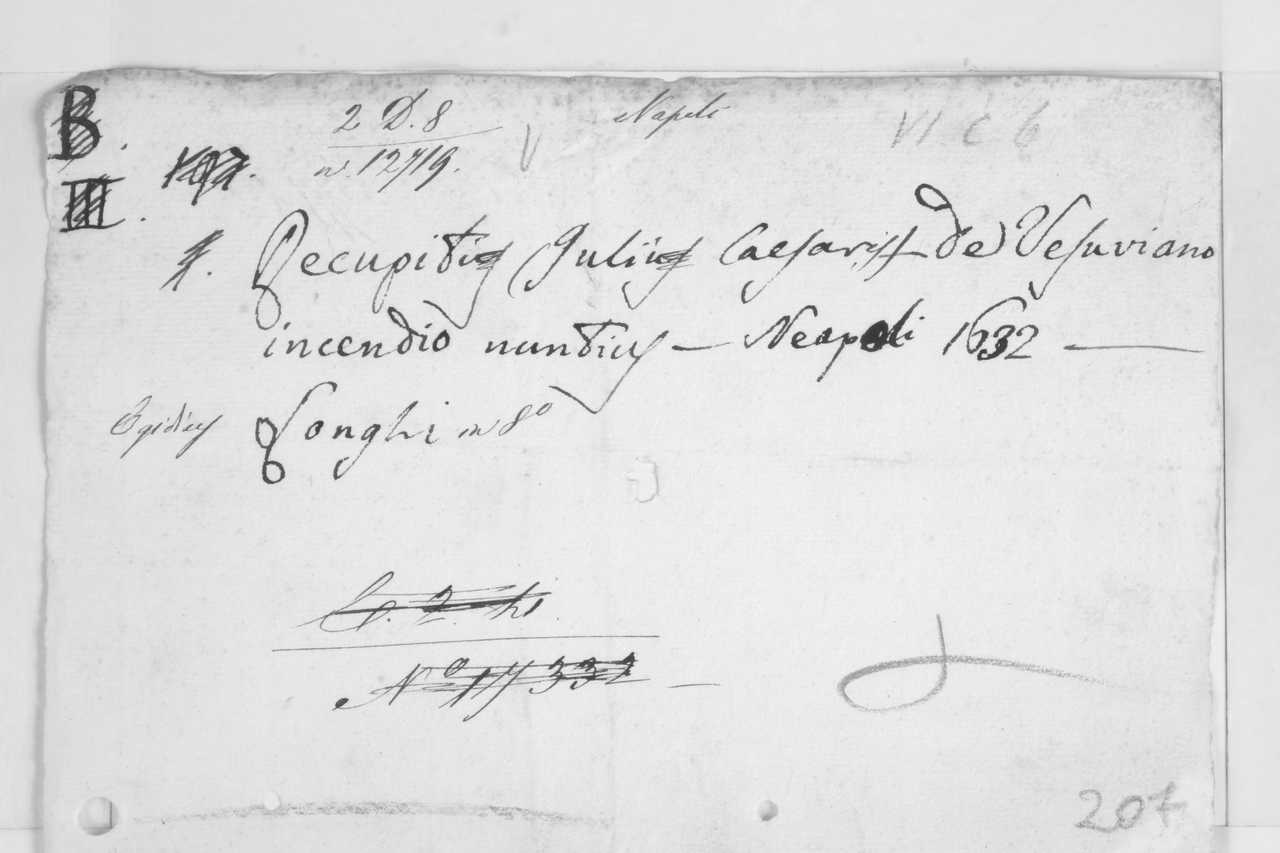 B.
III.
2 D. 8
n. 12719.
V
Napoli
VI C 6
Recupitius Julius Caesaris de Vesuviano
incendio nuntius — Neapoli 1632 —
Egidius Longhi in 8o
C. 2. hi.
No 17332 —
207